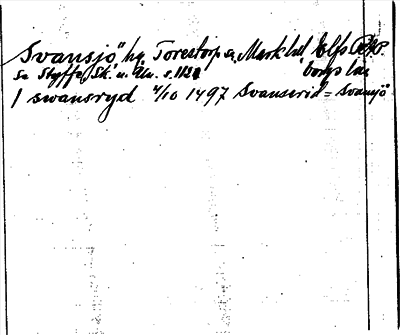 Svansjö" hg, Torestorp sn, Mark hd, Elfs
borgs län
se Styffe, Sk. u. Un. s.
/ swansryd 4/10 1497 Svanserid = Svansjö